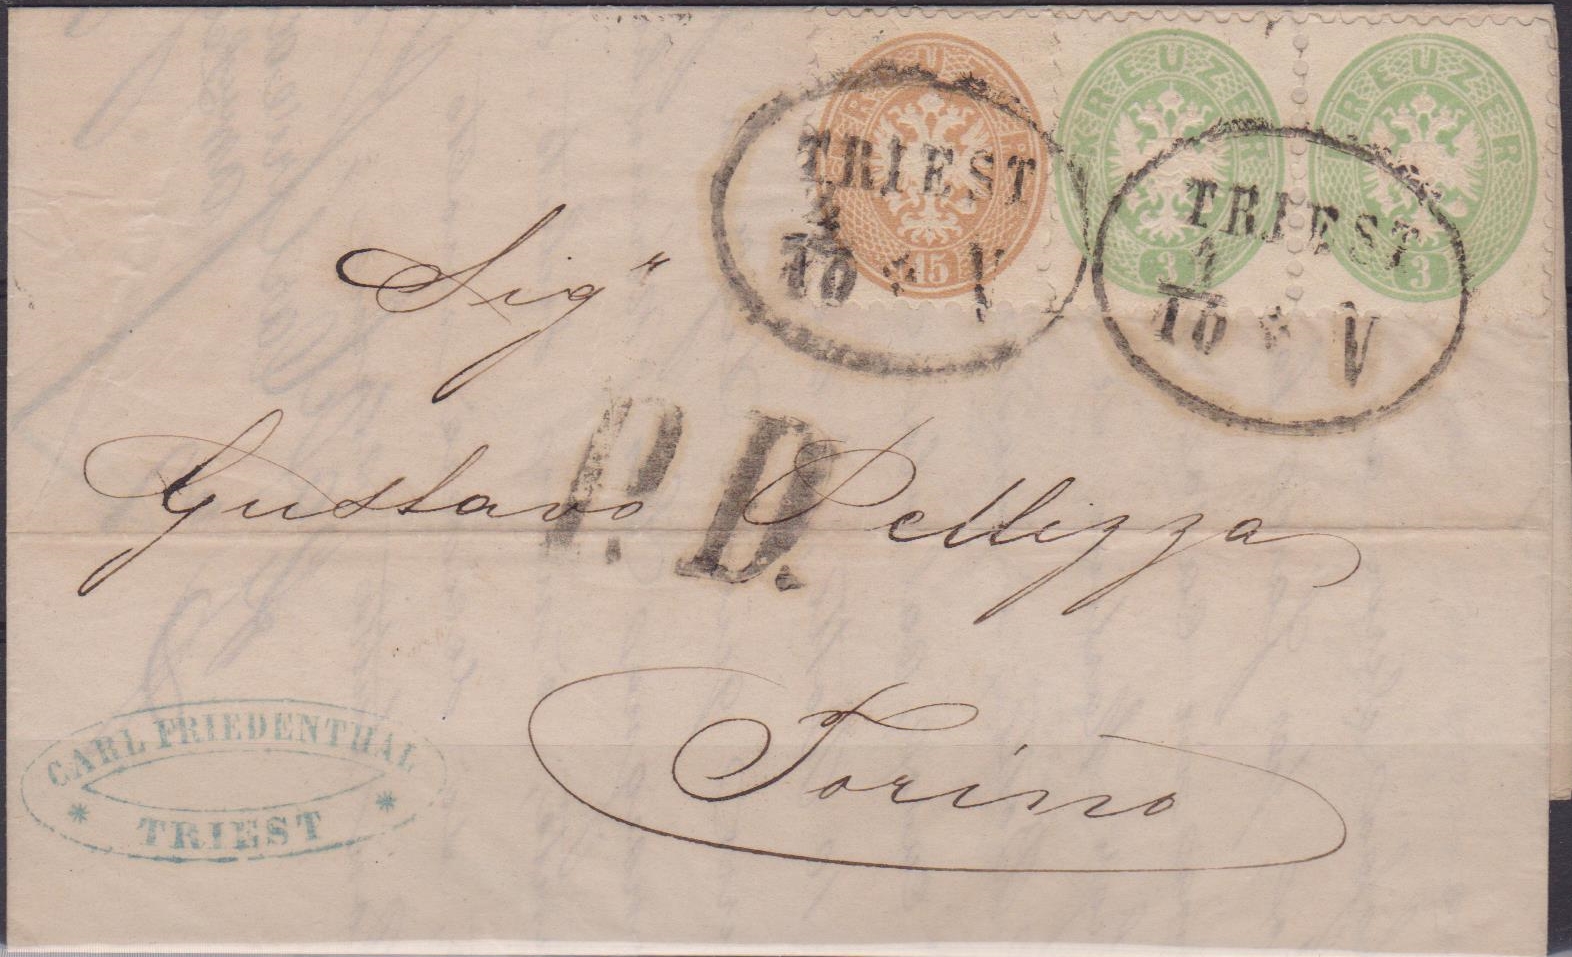 KREUZER
15
KREUZER
3
KREUZER
3
TRIEST
10 V
TRIEST
1
10 V
Sigr
Gustavo Pellizza
P. D.
Torino
CARL FRIEDENTHAL
TRIEST